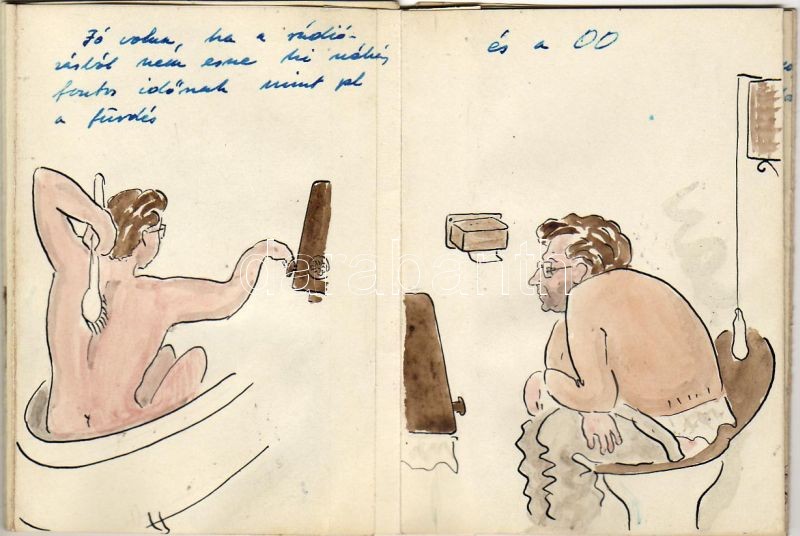 Jó volna, ha a rádió-
zásból nem esne ki néhány
fontos időnek mint pl
a fürdés
és a OO
darabanth